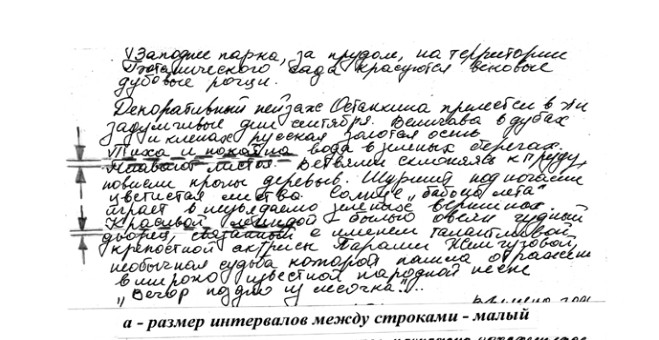 Западнее парка, за прудом, на территории
Ботанического сада красуются вековые
дубовые рощи.
Декоративный пейзаж Останкина прелестен в эти
задумчивые дни сентября. Величава в дубах
и кленах русская золотая осень
Тиха и покойна вода в земных берегах.
листья. Ветвями склоняясь к пруду,
повисли кроны деревьев. Шуршит под ногами
цветистая листва. Солнце „бабьего лета"
играет в вершинах.
Красивой былого овеян чудный
дворец, связанный с именем талантливой
крепостной актрисы Параши Жемчуговой,
необычная судьба которой нашла отражение
в широко известной народной песне
„Вечор поздно из лесочка"...
а - размер интервалов между строками - малый